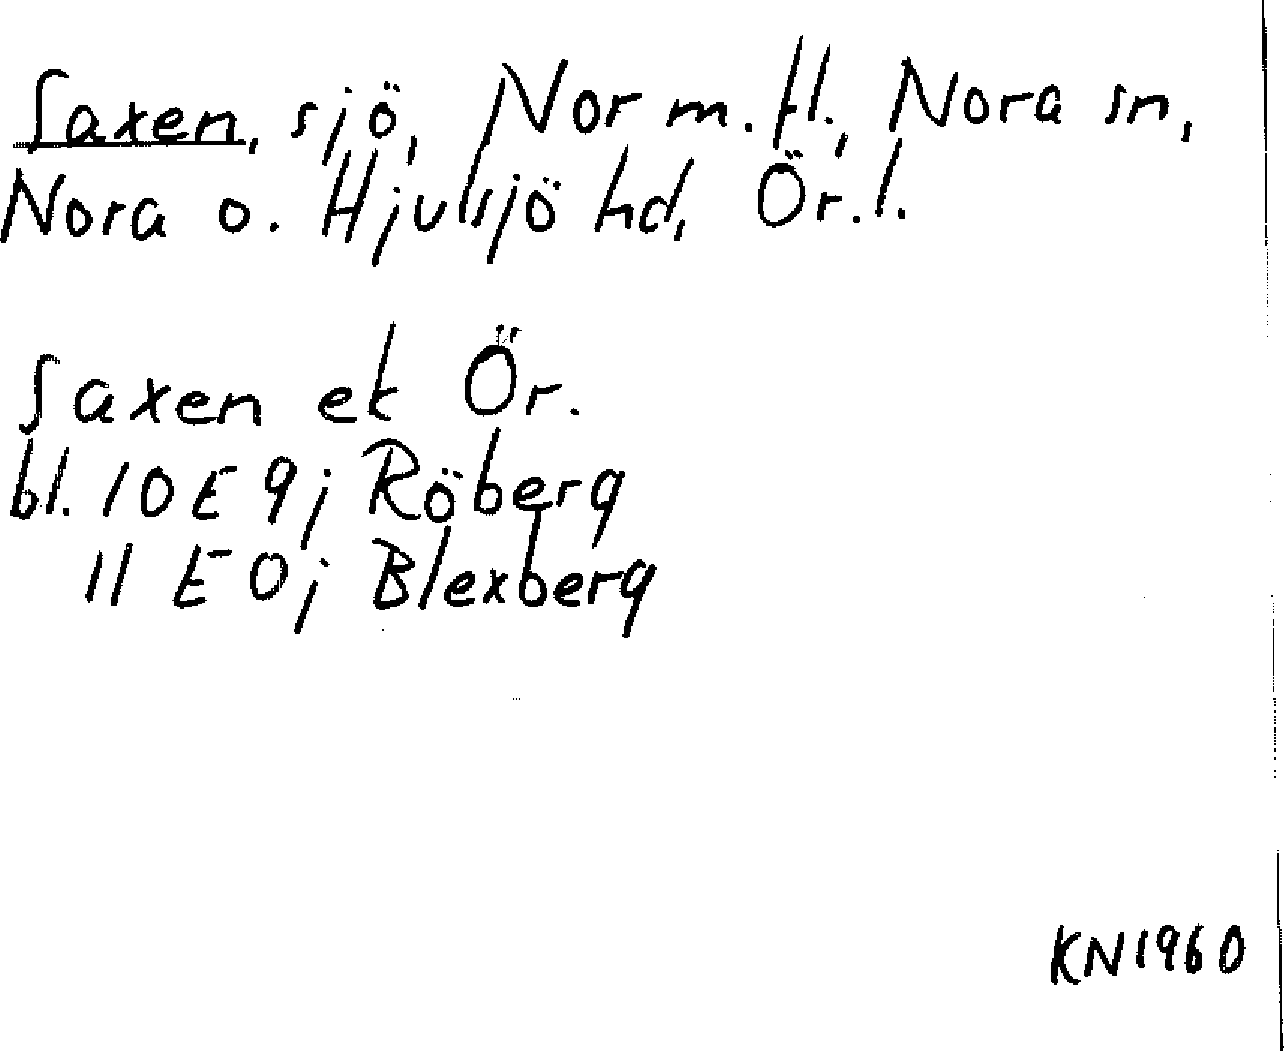 Saxen, sjö, Nor m. fl., Nora sn,
Nora o. Hjulsjö hd, Ör. l.
Saxen ek Ör.
bl. 10 E 9 j Röberg
11 E 0 j Blexberg
KN1960